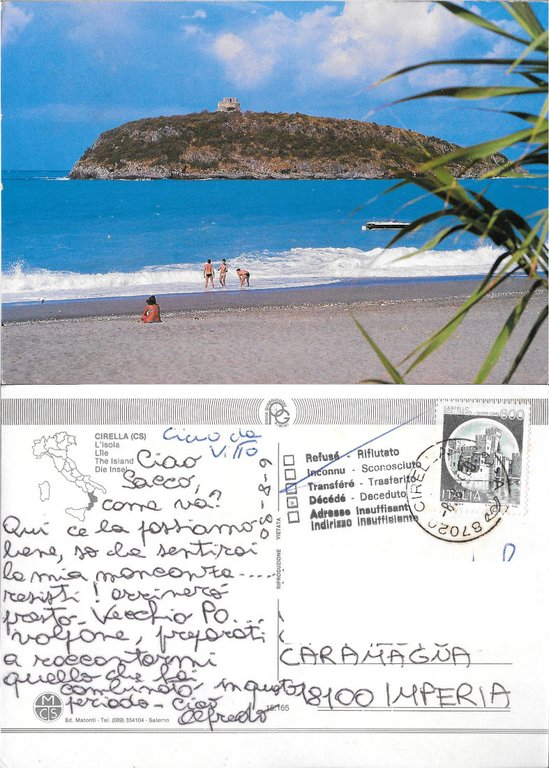 CIRELLA (CS)
L'isola
L'Ile
The Island
Die Insel
Ciao da
Villo
Ciao
Sacco,
come va?
Qui ce la passiamo
bene, so da sentirai
la mia mancanza....
resisti! arriverò
presto. Vecchio Po...
volpone, preparati
a raccontarmi
quello che hai
combinato in questo
periodo - Ciao
Alfredo
08-8-9
PG
RIPRODUZIONE VIETATA
Refusé - Rifiutato
Inconnu - Sconosciuto
Transféré - Trasferito
Décédé - Deceduto
Adresse insuffisant
Indirizzo insufficiente
CASTELLO
600
ITALIA
87020 CIRELLA
D
CARAMAGNA
18100 IMPERIA
MCS
Ed. Matonti - Tel. (089) 334104 - Salerno
15.165